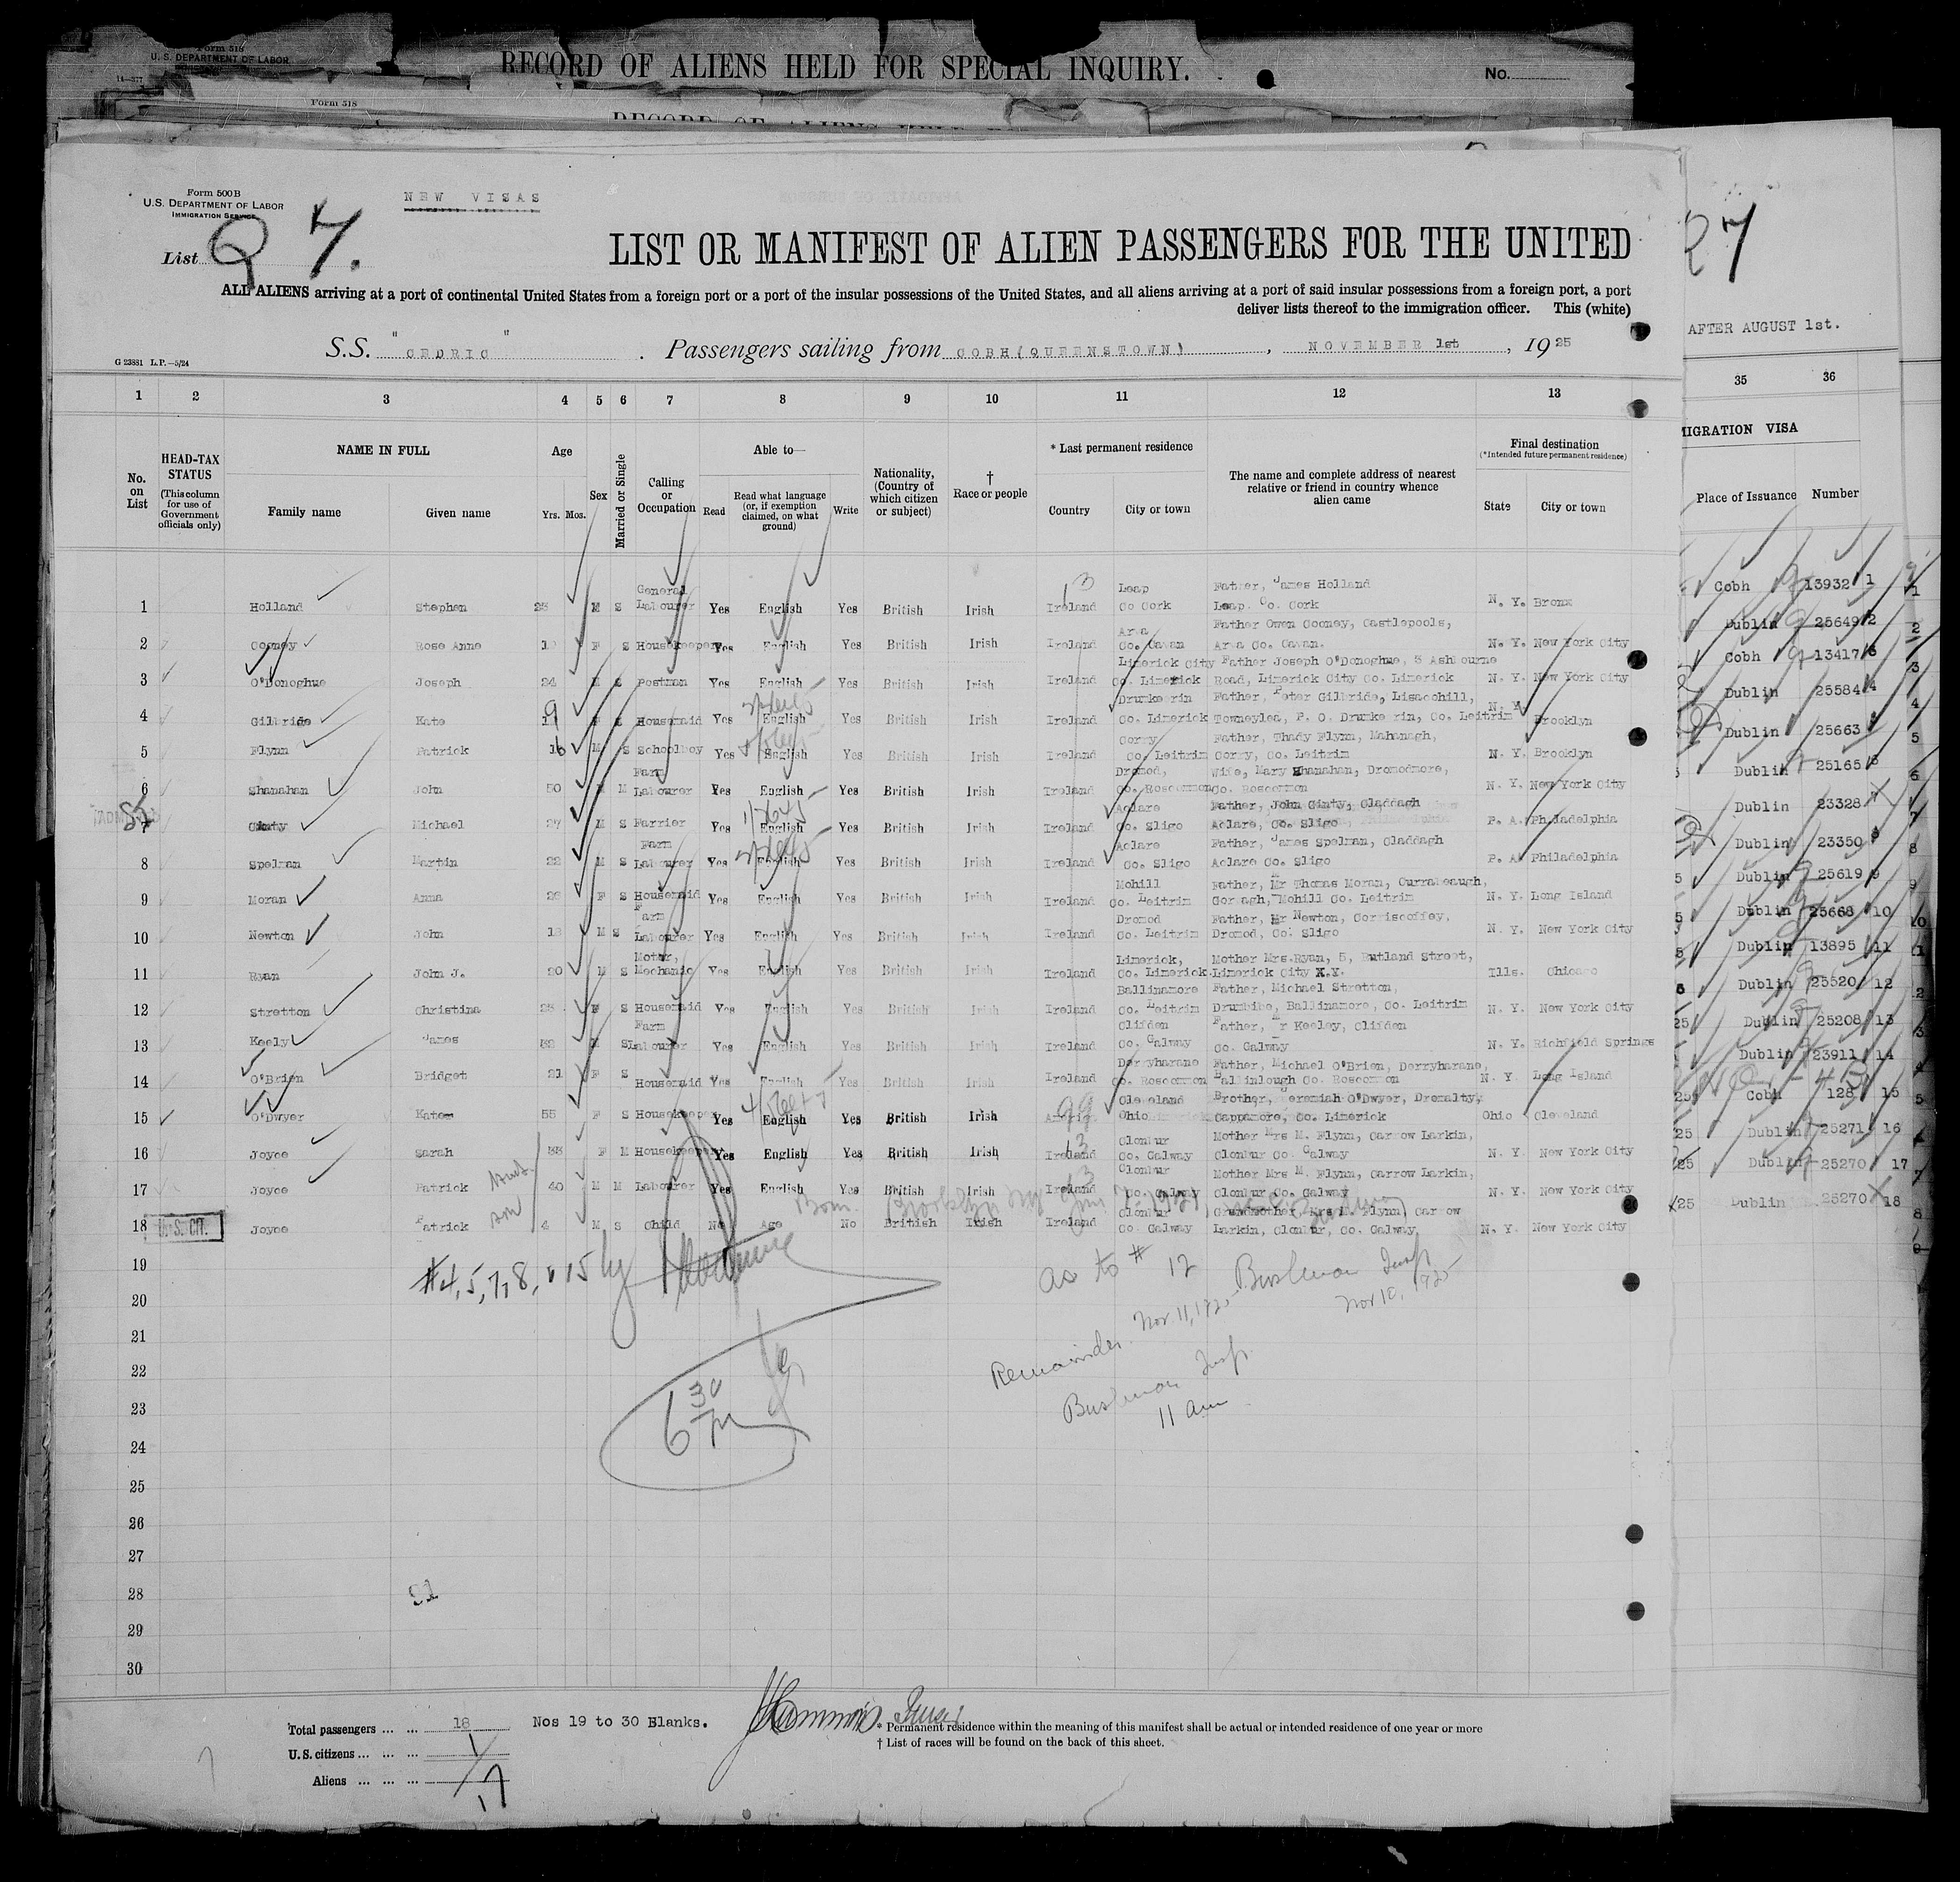 Form 518
U. S. DEPARTMENT OF LABOR
14—377
RECORD OF ALIENS HELD FOR SPECIAL INQUIRY.
No.
Form 518
RECORD OF ALIENS HELD
Form 500 B
U.S. DEPARTMENT OF LABOR
IMMIGRATION SERVICE
NEW VISAS
List Q 7.
27
LIST OR MANIFEST OF ALIEN PASSENGERS FOR THE UNITED
ALL ALIENS arriving at a port of continental United States from a foreign port or a port of the insular possessions of the United States, and all aliens arriving at a port of said insular possessions from a foreign port, a port
deliver lists thereof to the immigration officer. This (white)
AFTER AUGUST 1st.
S.S. "CEDRIC" . Passengers sailing from COBH (QUEENSTOWN) , NOVEMBER 1st , 1925
G 23881 L.P.—5/24
1 2 3 4 5 6 7 8 9 10 11 12 13 35 36
No. on List
HEAD-TAX STATUS
(This column for use of Government officials only)
NAME IN FULL
Family name Given name
Age
Yrs. Mos.
Sex
Married or Single
Calling or Occupation
Able to—
Read
Read what language (or, if exemption claimed, on what ground)
Write
Nationality, (Country of which citizen or subject)
† Race or people
* Last permanent residence
Country City or town
The name and complete address of nearest relative or friend in country whence alien came
Final destination
(*Intended future permanent residence)
State City or town
MIGRATION VISA
Place of Issuance Number
General Leap Father, James Holland
1 Holland Stephen 25 M S Labourer Yes English Yes British Irish Ireland Co Cork Leap. Co. Cork N. Y. Bronx Cobh 13932 1
Arva Father Owen Cooney, Castlepools,
2 Cooney Rose Anne F S Housekeeper Yes English Yes British Irish Ireland Co. Cavan Arva Co. Cavan. N. Y. New York City Dublin 25649 2
Limerick City Father Joseph O'Donoghue, 5 Ashbourne
3 O'Donoghue Joseph 24 M S Postman Yes English Yes British Irish Ireland Co. Limerick Road, Limerick City Co. Limerick N. Y. New York City Cobh 13417 3
Drumke rin Father, Peter Gilbride, Lisacohill,
4 Gilbride Kate F S Housemaid Yes English Yes British Irish Ireland Co. Limerick Towneylea, P. O. Drumke rin, Co. Leitrim N. Y. Brooklyn Dublin 25584 4
Gorry Father, Thady Flynn, Mahanagh,
5 Flynn Patrick 16 M S Schoolboy Yes English Yes British Irish Ireland Co. Leitrim Gorry, Co. Leitrim N. Y. Brooklyn Dublin 25663 5
Farm Dromod, Wife, Mary Shanahan, Dromodmore,
6 Shanahan John 50 M M Labourer Yes English Yes British Irish Ireland Co. Roscommon Co. Roscommon N. Y. New York City Dublin 25165 6
Aclare Father, John Ginty, Claddagh
7 Ginty Michael 27 M S Farrier Yes English Yes British Irish Ireland Co. Sligo Aclare, Co. Sligo P. A. Philadelphia Dublin 23328 7
Farm Aclare Father, James Spelman, Claddagh
8 Spelman Martin 22 M S Labourer Yes English Yes British Irish Ireland Co. Sligo Aclare Co. Sligo P. A. Philadelphia Dublin 23350 8
Mohill Father, Mr Thomas Moran, Currabeaugh,
9 Moran Anna 26 F S Housemaid Yes English Yes British Irish Ireland Co. Leitrim Gorvagh, Mohill Co. Leitrim N. Y. Long Island Dublin 25619 9
Farm Dromod Father, Mr Newton, Corriscoffey,
10 Newton John M S Labourer Yes English Yes British Irish Ireland Co. Leitrim Dromod, Co. Sligo N. Y. New York City Dublin 25668 10
Motor, Limerick, Mother Mrs.Ryan, 5, Rutland Street,
11 Ryan John J. 20 M S Mechanic Yes English Yes British Irish Ireland Co. Limerick. Limerick City Ills. Chicago Dublin 13895 11
Ballinamore Father, Michael Stretton,
12 Stretton Christina 25 F S Housemaid Yes English Yes British Irish Ireland Co. Leitrim Drumbibe, Ballinamore, Co. Leitrim N. Y. New York City Dublin 25520 12
Farm Clifden Father, Mr Keeley, Clifden
13 Keely James M S Labourer Yes English Yes British Irish Ireland Co. Galway Co. Galway N. Y. Richfield Springs Dublin 25208 13
Derryharane Father, Michael O'Brien, Derryharane,
14 O'Brien Bridget 21 F S Housemaid Yes English Yes British Irish Ireland Co. Roscommon Ballinlough Co. Roscommon N. Y. Long Island Dublin 23911 14
Cleveland Brother, Jeremiah O'Dwyer, Dromalty,
15 O'Dwyer Kate 55 F S Housekeeper Yes English Yes British Irish Ohio Cappamore, Co. Limerick Ohio Cleveland Cobh 128 15
Clonbur Mother Mrs M. Flynn, Carrow Larkin,
16 Joyce Sarah F M Housekeeper Yes English Yes British Irish Ireland Co. Galway Clonbur Co. Galway N. Y. New York City Dublin 25271 16
Clonbur Mother Mrs M. Flynn, Carrow Larkin,
17 Joyce Patrick 40 M M Labourer Yes English Yes British Irish Ireland Co. Galway Clonbur Co. Galway N. Y. New York City Dublin 25270 17
son Born Brooklyn NY
Clonbur Grandmother, Mrs M. Flynn, Carrow
18 U.S. CIT. Joyce Patrick 4 M S Child No Age No British Irish Ireland Co. Galway Larkin, Clonbur, Co. Galway N. Y. New York City Dublin 25270 18
19
#4, 5, 7, 8, & 15 by
as to # 12 Bushman Insp
Nov 10, 1925
20
Remainder Nov 11, 1925
21
22
Bushman Insp.
11 am
23
6 30 PM
24
25
26
27
28
29
30
Total passengers ... ... 18
Nos 19 to 30 Blanks.
U. S. citizens ... ... ... 1
Aliens ... ... ... 17
* Permanent residence within the meaning of this manifest shall be actual or intended residence of one year or more
† List of races will be found on the back of this sheet.